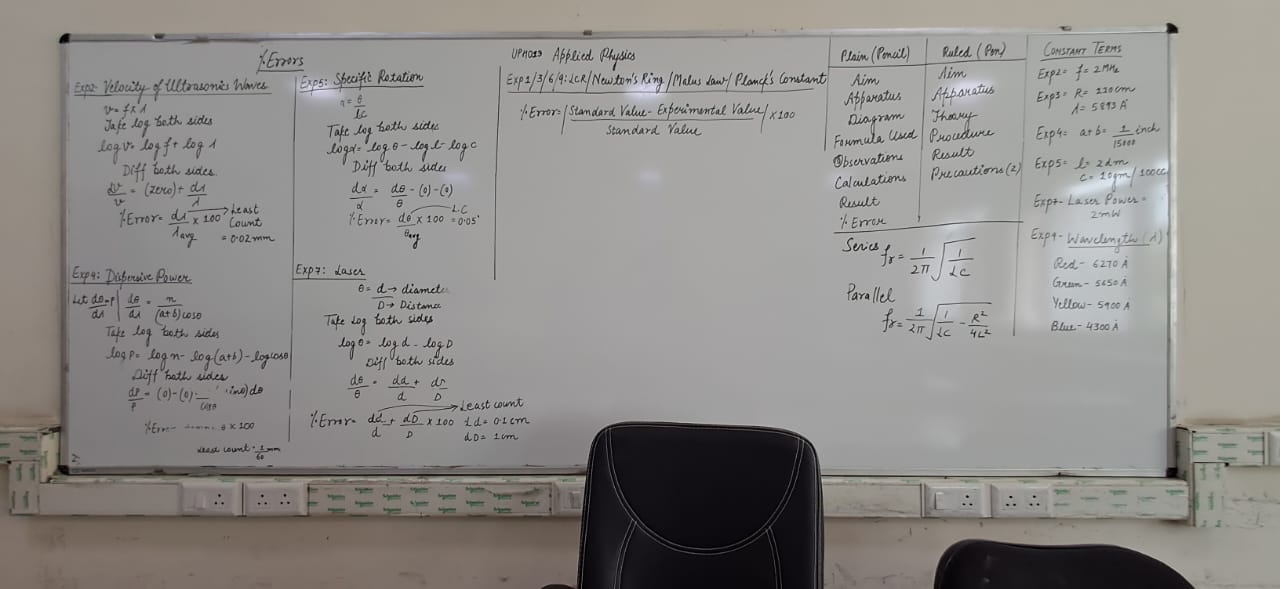 % Errors
Exp2- Velocity of Ultrasonic Waves
v = f × λ
Take log both sides
log v = log f + log λ
Diff both sides.
dv/v = (zero) + dλ/λ
% Error = dλ/λavg × 100 → Least Count = 0.02 mm
Exp4: Dispersive Power
Let dθ/dλ = P | dθ/dλ = n/(a+b)cosθ
Take log both sides
log P = log n - log(a+b) - log cosθ
Diff both sides
dP/P = (0) - (0)
% Error = θ × 100
Least count = 1/60
Exp5: Specific Rotation
θ/lc
Take log both sides
log α = log θ - log l - log c
Diff both sides
dα/α = dθ/θ - (0) - (0)
% Error = dθ/θavg × 100 LC = 0.05°
Exp7: Laser
θ = d → diameter
D → Distance
Take Log both sides
log θ = log d - log D
Diff both sides
dθ/θ = dd/d +
% Error = dd/d + dD/D × 100 → Least count
Ld = 0.1 cm
dD = 1 cm
UPH013 Applied Physics
Exp 1/3/6/9: LCR/Newton's Ring/Malus Law/Planck's Constant
% Error = |Standard Value - Experimental Value / Standard Value| × 100
Plain (Pencil)
Aim
Apparatus
Diagram
Formula Used
Observations
Calculations
Result
% Error
Ruled (Pen)
Aim
Apparatus
Theory
Procedure
Result
Precautions (2)
Series
fr = 1/2π √(1/LC)
Parallel
fr = 1/2π √(1/LC - R²/4L²)
CONSTANT TERMS
Exp2 = f = 2MHz
Exp3 = R = 220cm
λ = 5893 Å
Exp4 = a+b = 1/15000 inch
Exp5 = l = 2dm
C = 10gm/100cc
Exp7- Laser Power =
2mW
Exp9- Wavelength (λ)
Red - 6270 Å
Green - 5650 Å
Yellow - 5900 Å
Blue - 4300 Å
Schneider